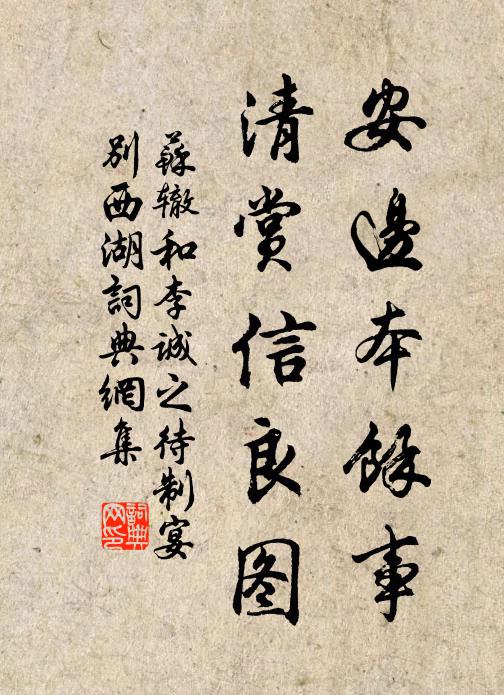 安邊本餘事
清賞信良图
蘇辙和李诚之待制宴
別西湖詞典網集
詞典
网印